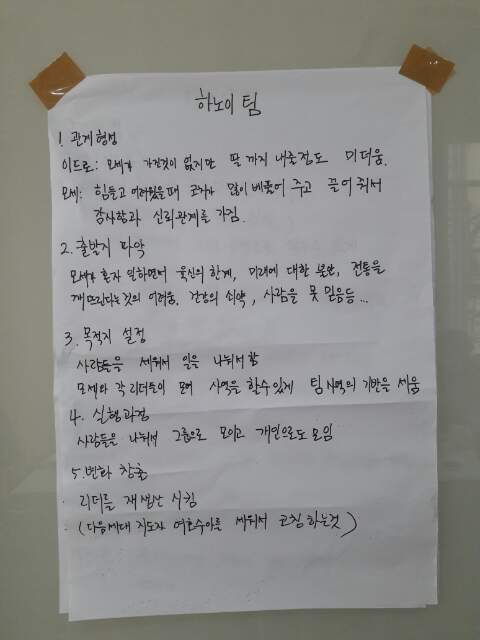 하노이 팀
1. 관계형성
이드로: 모세가 가진것이 없지만 딸까지 내줄정도 미더움.
모세: 힘들고 어려웠을때 코치가 많이 베풀어 주고 끌어줘서
감사함과 신뢰관계를 가짐.
2. 출발지 파악
모세가 혼자 일하면서 육신의 한계, 미래에 대한 불안, 전통을
깨뜨린다는것의 어려움. 건강의 쇠약, 사람을 못 믿음등...
3. 목적지 설정
사람들을 세워서 일을 나눠서 함
모세와 각 리더들이 모여 사역을 할수있게 팀사역의 기반을 세움
4. 실행과정
사람들을 나눠서 그룹으로 모이고 개인으로도 모임
5. 변화 창출
리더를 재생산 시킴
(다음세대 지도자 여호수아를 세워서 코칭하는것)